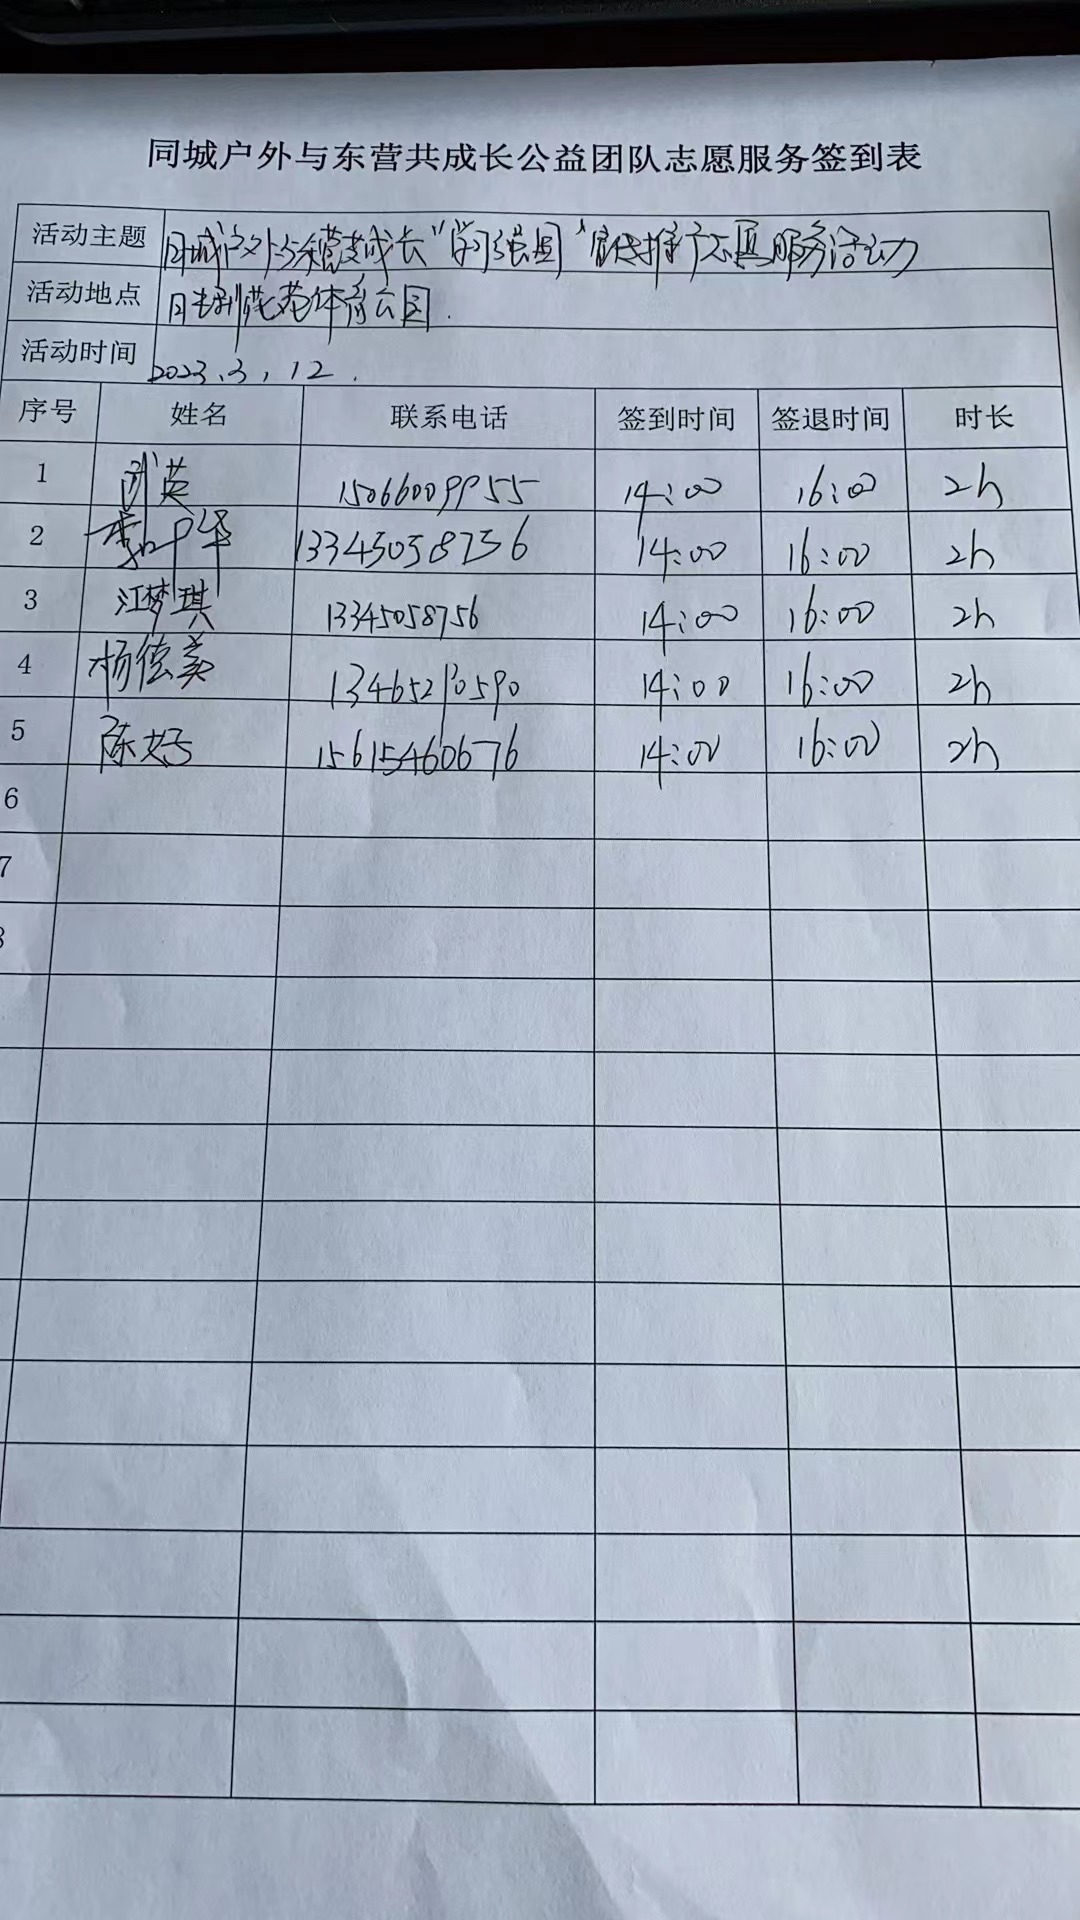 同城户外与东营共成长公益团队志愿服务签到表
活动主题 同城户外与东营共成长“学习强国”宣传推广志愿服务活动
活动地点 胜利花苑体育公园.
活动时间 2023、3，12.
序号 姓名 联系电话 签到时间 签退时间 时长
1 刘英 15066009955 14:00 16:00 2h
2 李中华 13345058756 14:00 16:00 2h
3 江梦琪 13345058756 14:00 16:00 2h
4 杨德美 13465290590 14:00 16:00 2h
5 陈好 15615460676 14:00 16:00 2h
6
7
8